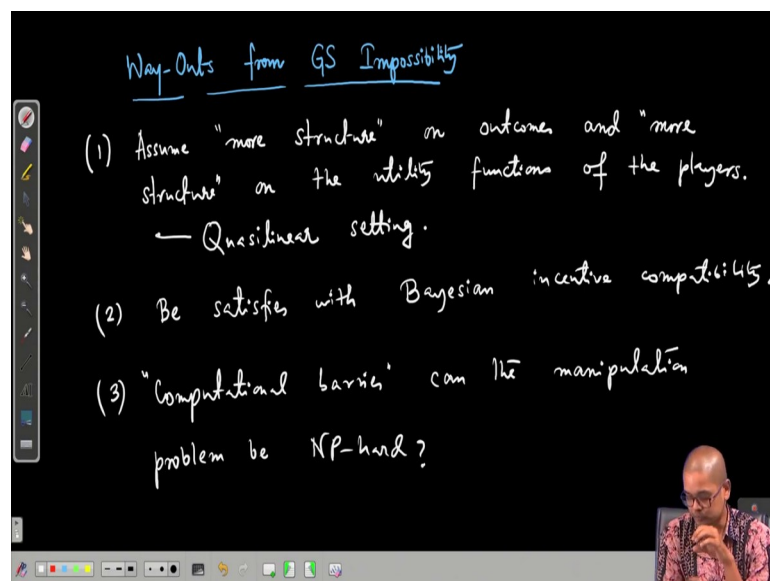 Way-Outs from GS Impossibility
(1) Assume "more structure" on outcomes and "more
structure" on the utility functions of the players.
— Quasilinear setting.
(2) Be satisfies with Bayesian incentive compatibility.
(3) "Computational barrier" can the manipulation
problem be NP-hard?